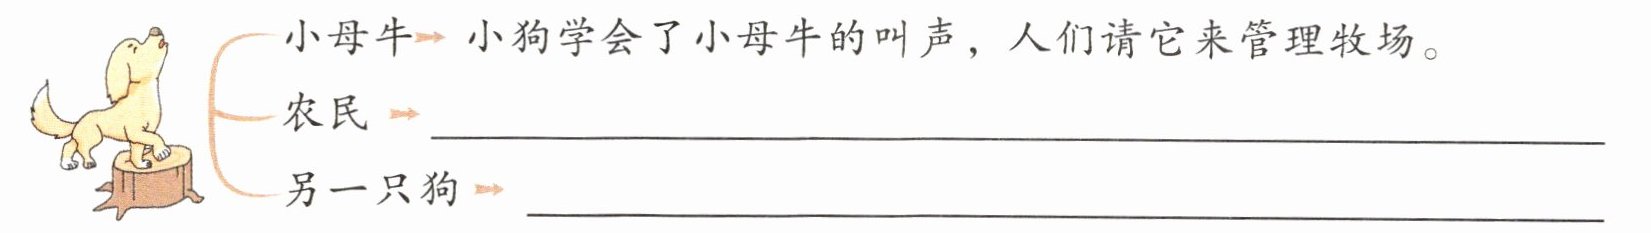 小母牛 小狗学会了小母牛的叫声，人们请它来管理牧场。
农民
另一只狗